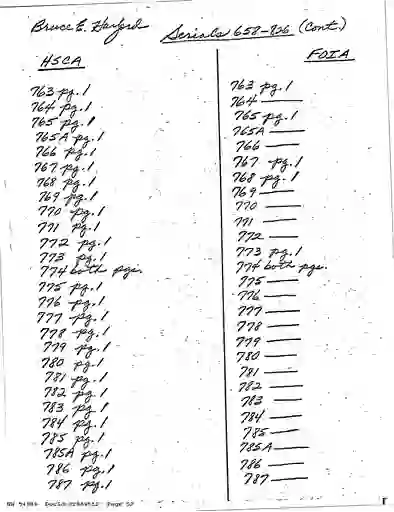 Bruce E.
Serials 658-826 (Cont.)
HSCA
763 pg. 1
764 pg. 1
765 pg. 1
765A pg. 1
766 pg. 1
767 pg. 1
768 pg. 1
769 pg. 1
770 pg. 1
771 pg. 1
772 pg. 1
773 pg. 1
774 both pgs.
775 pg. 1
776 pg. 1
777 pg. 1
778 pg. 1
779 pg. 1
780 pg. 1
781 pg. 1
782 pg. 1
783 pg. 1
784 pg. 1
785 pg. 1
785A pg. 1
786 pg. 1
787 pg. 1
FOIA
763 pg. 1
764 —
765 pg. 1
765A —
766 —
767 pg. 1
768 pg. 1
769 —
770 —
771 —
772 —
773 pg. 1
774 both pgs.
775 —
776 —
777 —
778 —
779 —
780 —
781 —
782 —
783 —
784 —
785 —
785A —
786 —
787 —